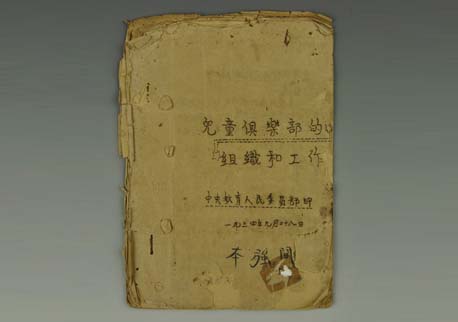 兒童俱樂部的
組織和工作
中央教育人民委員部印
一九三四年九月廿八日
本強